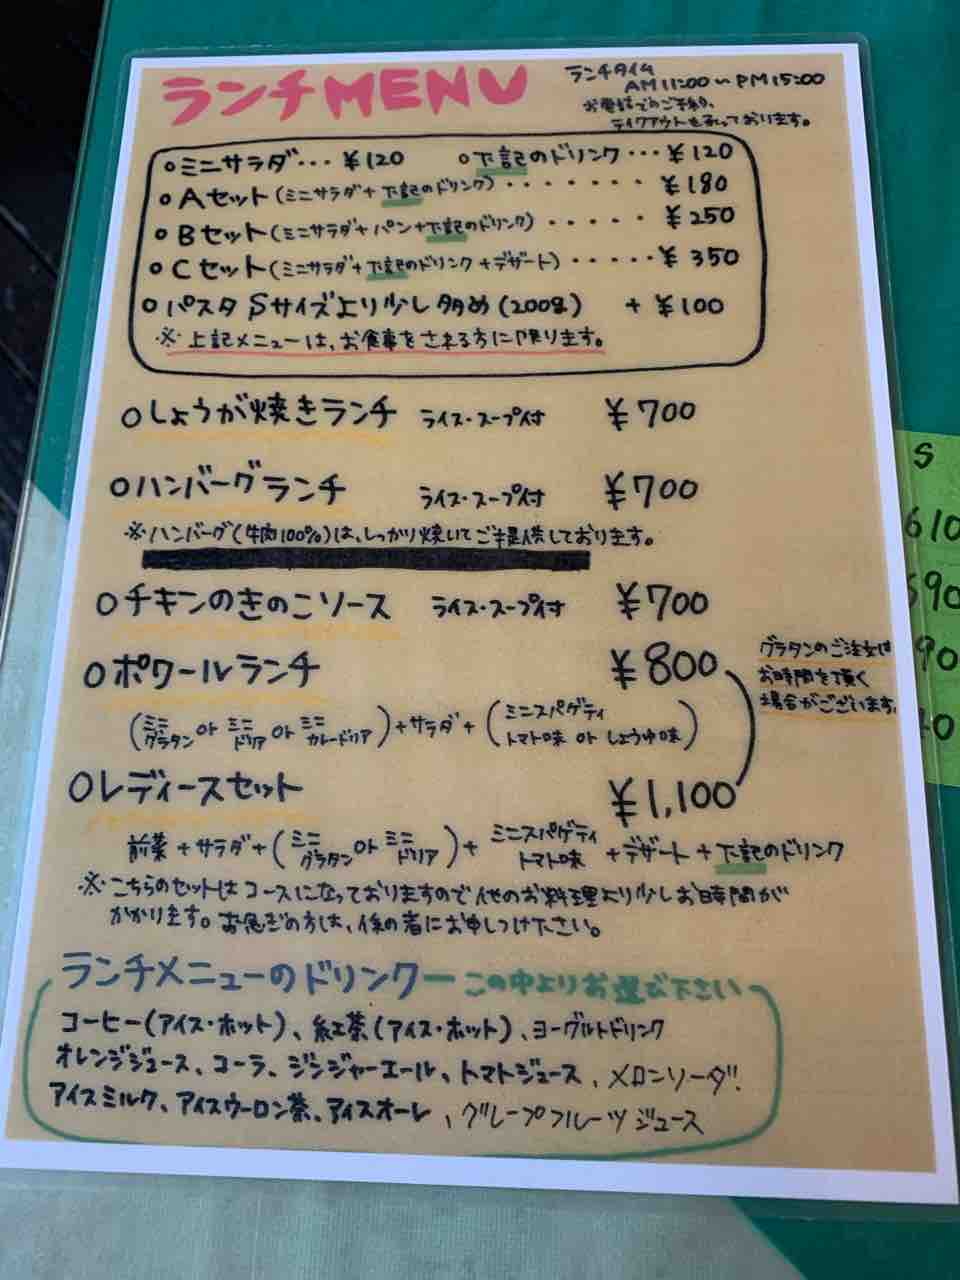 ランチMENU
ランチタイム
AM11:00〜PM15:00
お電話でのご予約、
テイクアウトも承っております。
○ミニサラダ・・・¥120 ○下記のドリンク・・・¥120
○Aセット(ミニサラダ+下記のドリンク)・・・・・・・¥180
○Bセット(ミニサラダ+パン+下記のドリンク)・・・・・¥250
○Cセット(ミニサラダ+下記のドリンク+デザート)・・・・・¥350
○パスタSサイズより少し多め(200g) +¥100
※上記メニューは、お食事をされる方に限ります。
○しょうが焼きランチ ライス・スープ付 ¥700
○ハンバーグランチ ライス・スープ付 ¥700
※ハンバーグ(牛肉100%)は、しっかり焼いてご提供しております。
○チキンのきのこソース ライス・スープ付 ¥700
○ポワールランチ ¥800
(ミニグラタン or ミニドリア or ミニカレードリア)+サラダ+(ミニスパゲティ トマト味 or しょうゆ味)
グラタンのご注文は
お時間を頂く
場合がございます。
○レディースセット ¥1,100
前菜+サラダ+(ミニグラタン or ミニドリア)+ミニスパゲティ トマト味+デザート+下記のドリンク
※こちらのセットはコースになっておりますので他のお料理より少しお時間が
かかります。お急ぎの方は、係の者にお申しつけ下さい。
ランチメニューのドリンクーこの中よりお選び下さい
コーヒー(アイス・ホット)、紅茶(アイス・ホット)、ヨーグルトドリンク
オレンジジュース、コーラ、ジンジャーエール、トマトジュース、メロンソーダ
アイスミルク、アイスウーロン茶、アイスオーレ、グレープフルーツジュース
S
610
90
90